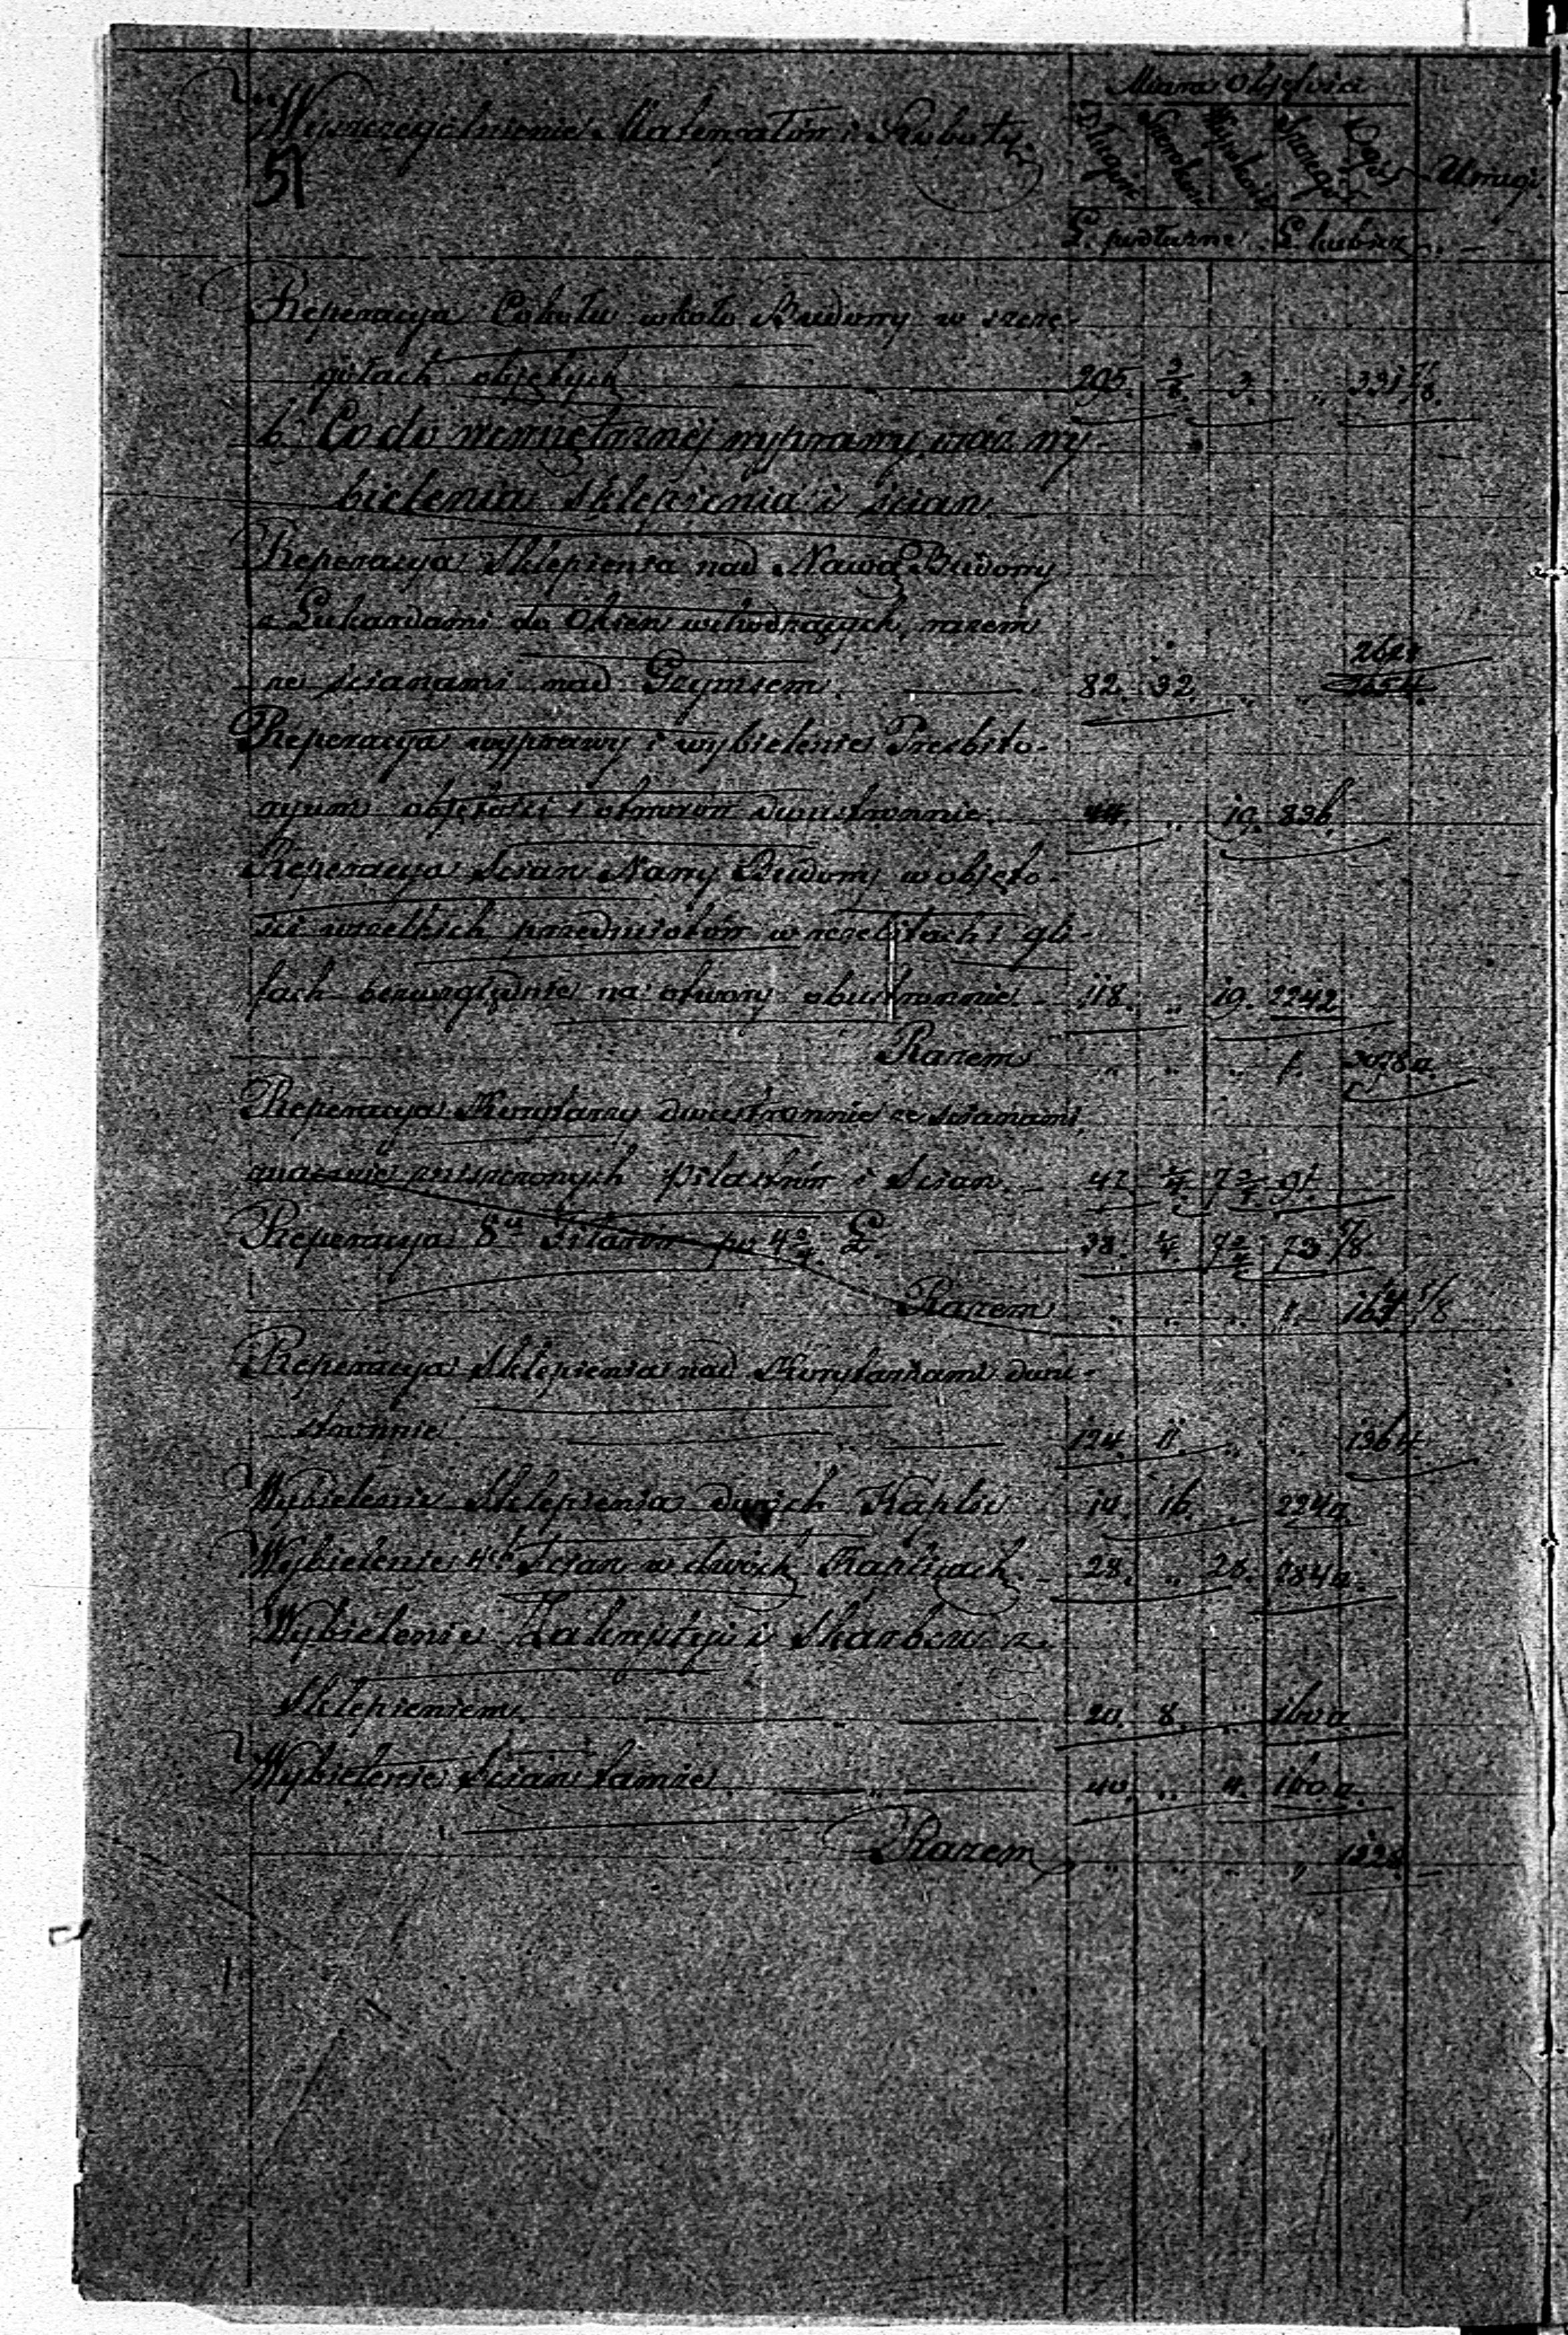 Wyszczególnienie Materyałów i Robót
Miara Objętości
Długość Szerokość Wysokość Uwagi
51
Ł. podłużne Ł. kubicz.
Reperacya Cokołu wkoło Budowy w szcze-
gółach objętych 295. 3.
b. Co do wewnętrznej wyprawy, oraz wy-
bielenia sklepienia i ścian
Reperacya Sklepienia nad Nawą Budowy
z Lukardami do Okien wchodzących, razem
ze ścianami nad Gzymsem. 82. 32. 2624
Reperacya wyprawy i wybielenie Prezbite-
ryum objętości i otworów dwustronnie 44. " 19. 836.
Reperacya Ścian Nawy Budowy w objęto-
ści wszelkich przedmiotów w rezalitach i gli-
fach bezwzględnie na otwory obustronnie 118. " 19. 2242
Razem " " " " 3078
Reperacya Kruntarzy dwustronnie ze ścianami
znacznie zniszczonych pilastrów i Ścian 47. 1/4 7 3/4 91.
Reperacya 8u Filarów po 4 3/4 Ł. 38. 1/4 7 3/4 73 5/8
Razem " " " " 164 5/8
Reperacya Sklepienia nad Korytarzami dwu-
stronnie 124. 11. " " 1364
Wybielenie Sklepienia dwóch Kaplic 14. 16. " 224
Wybielenie 4ch Ścian w dwóch Kaplicach 28. " 28. 784
Wybielenie Zakrystyi i Skarbcu z
Sklepieniem 20. 8. " 160
Wybielenie Ścian tamże " 40. " 4. 160
Razem " " " " 1328